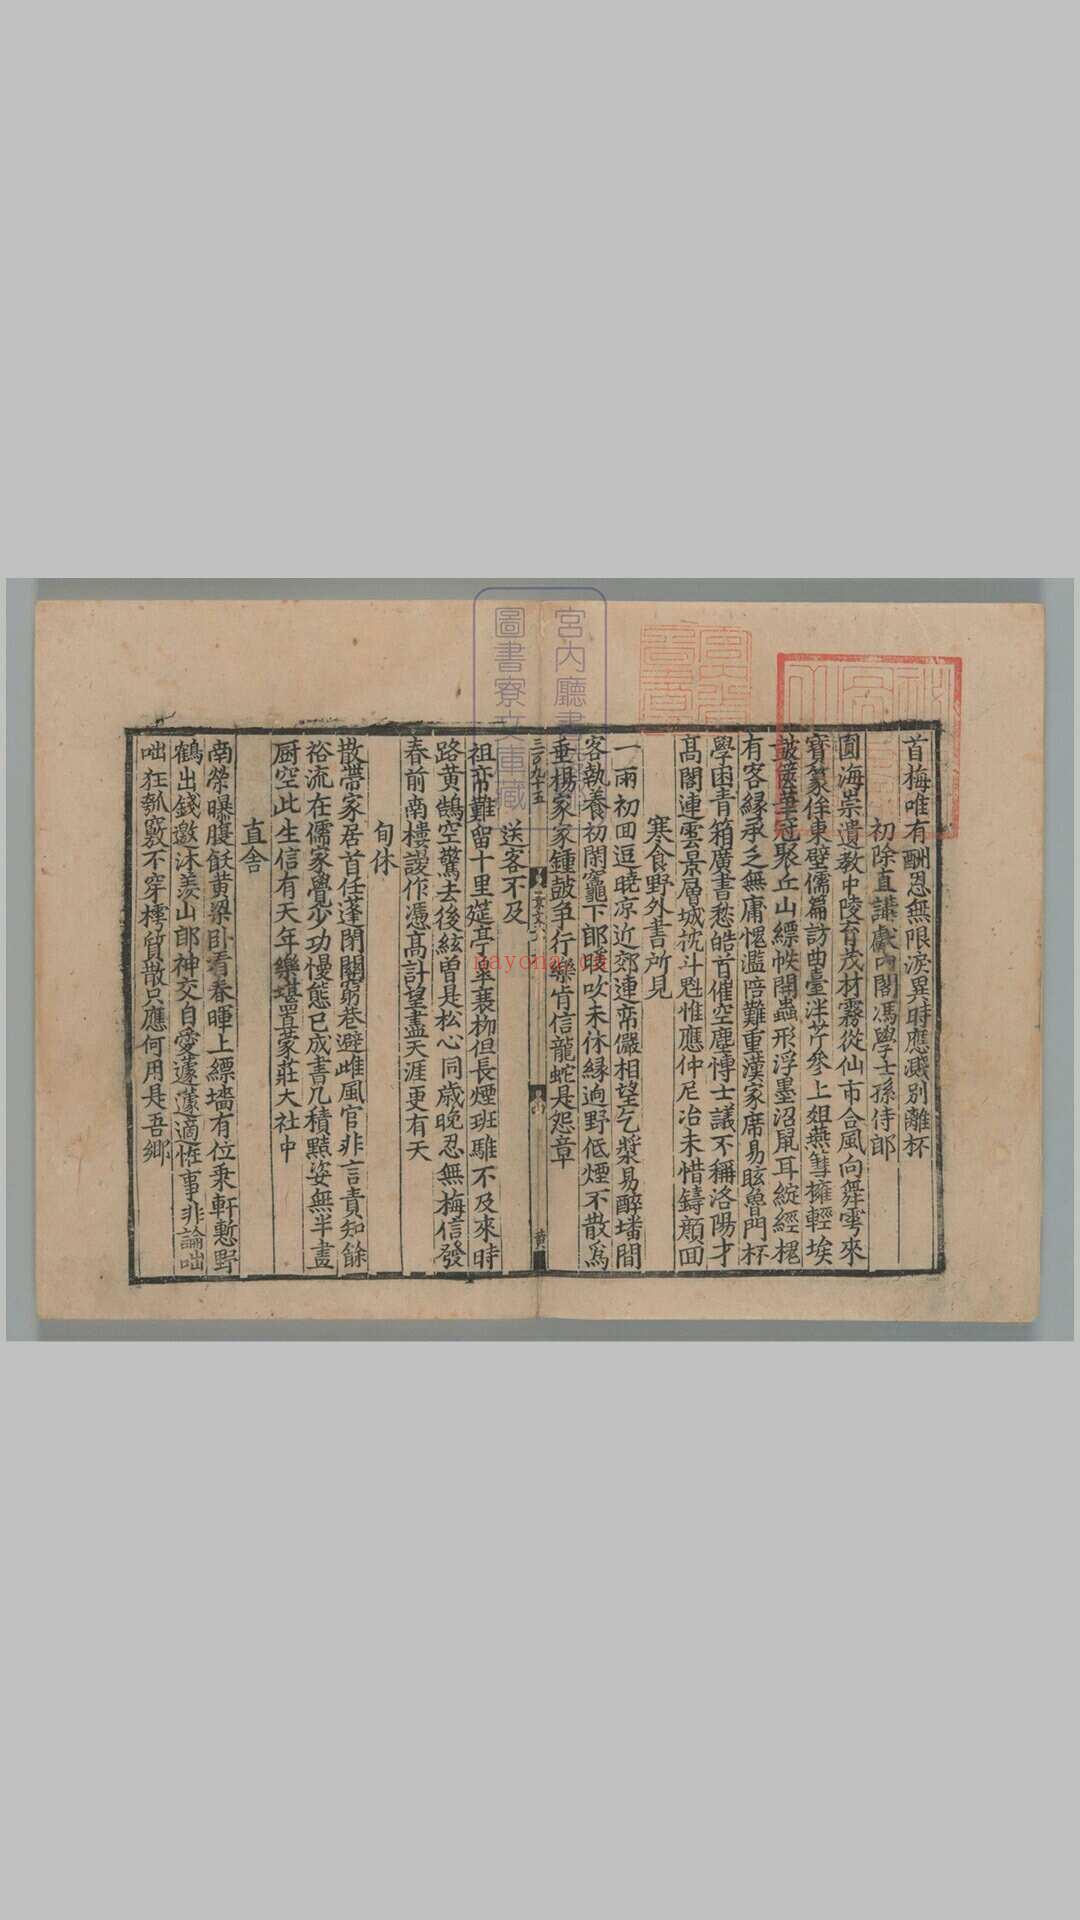 首梅唯有酬恩無限淚異時應濺別離杯
初除直講獻內閣馮學士孫侍郎
圓海崇遺教中陵育茂材霧從仙市合風向舞雩來
寶篆侔東壁儒篇訪曲臺泮芹參上俎燕彗擁輕埃
鼓篋華冠聚丘山縹帙開蟲形浮墨沼鼠耳綻經槐
有客緣承乏無庸愧濫陪難重漢家席易眩魯門杯
學困青箱廣書愁皓首催空塵博士議不稱洛陽才
髙閣連雲景層城抌斗魁惟應仲尼冶未惜鑄顏回
寒食野外書所見
一雨初回逗曉凉近郊連帟儼相望乞漿易醉墦間
客執養初閑竈下郎暖吹未休緣逈野低煙不散爲
垂楊家家鍾鼓争行樂肯信龍蛇是怨章
三百九十五
景文
六
黄
送客不及
祖帟難留十里筵亭臯衰栁但長煙班騅不及來時
路黄鵠空驚去後絃曽是松心同歳晚忍無梅信發
春前南樓謾作憑髙計望盡天涯更有天
旬休
散帶家居首任蓬閉關窮巷避雌風官非言責知餘
裕流在儒家覺少功慢態已成書几積黠姿無半畫
厨空此生信有天年樂堪置蒙莊大社中
直舍
南榮曝腹飫黄粱卧看春暉上縹墻有位乘軒慙野
鶴出錢邀沐羨山郎神交自愛蘧蘧適恠事非論咄
咄狂瓠竅不穿樗質散只應何用是吾鄉
宮內廳書
圖書寮文庫藏
nayona.cn